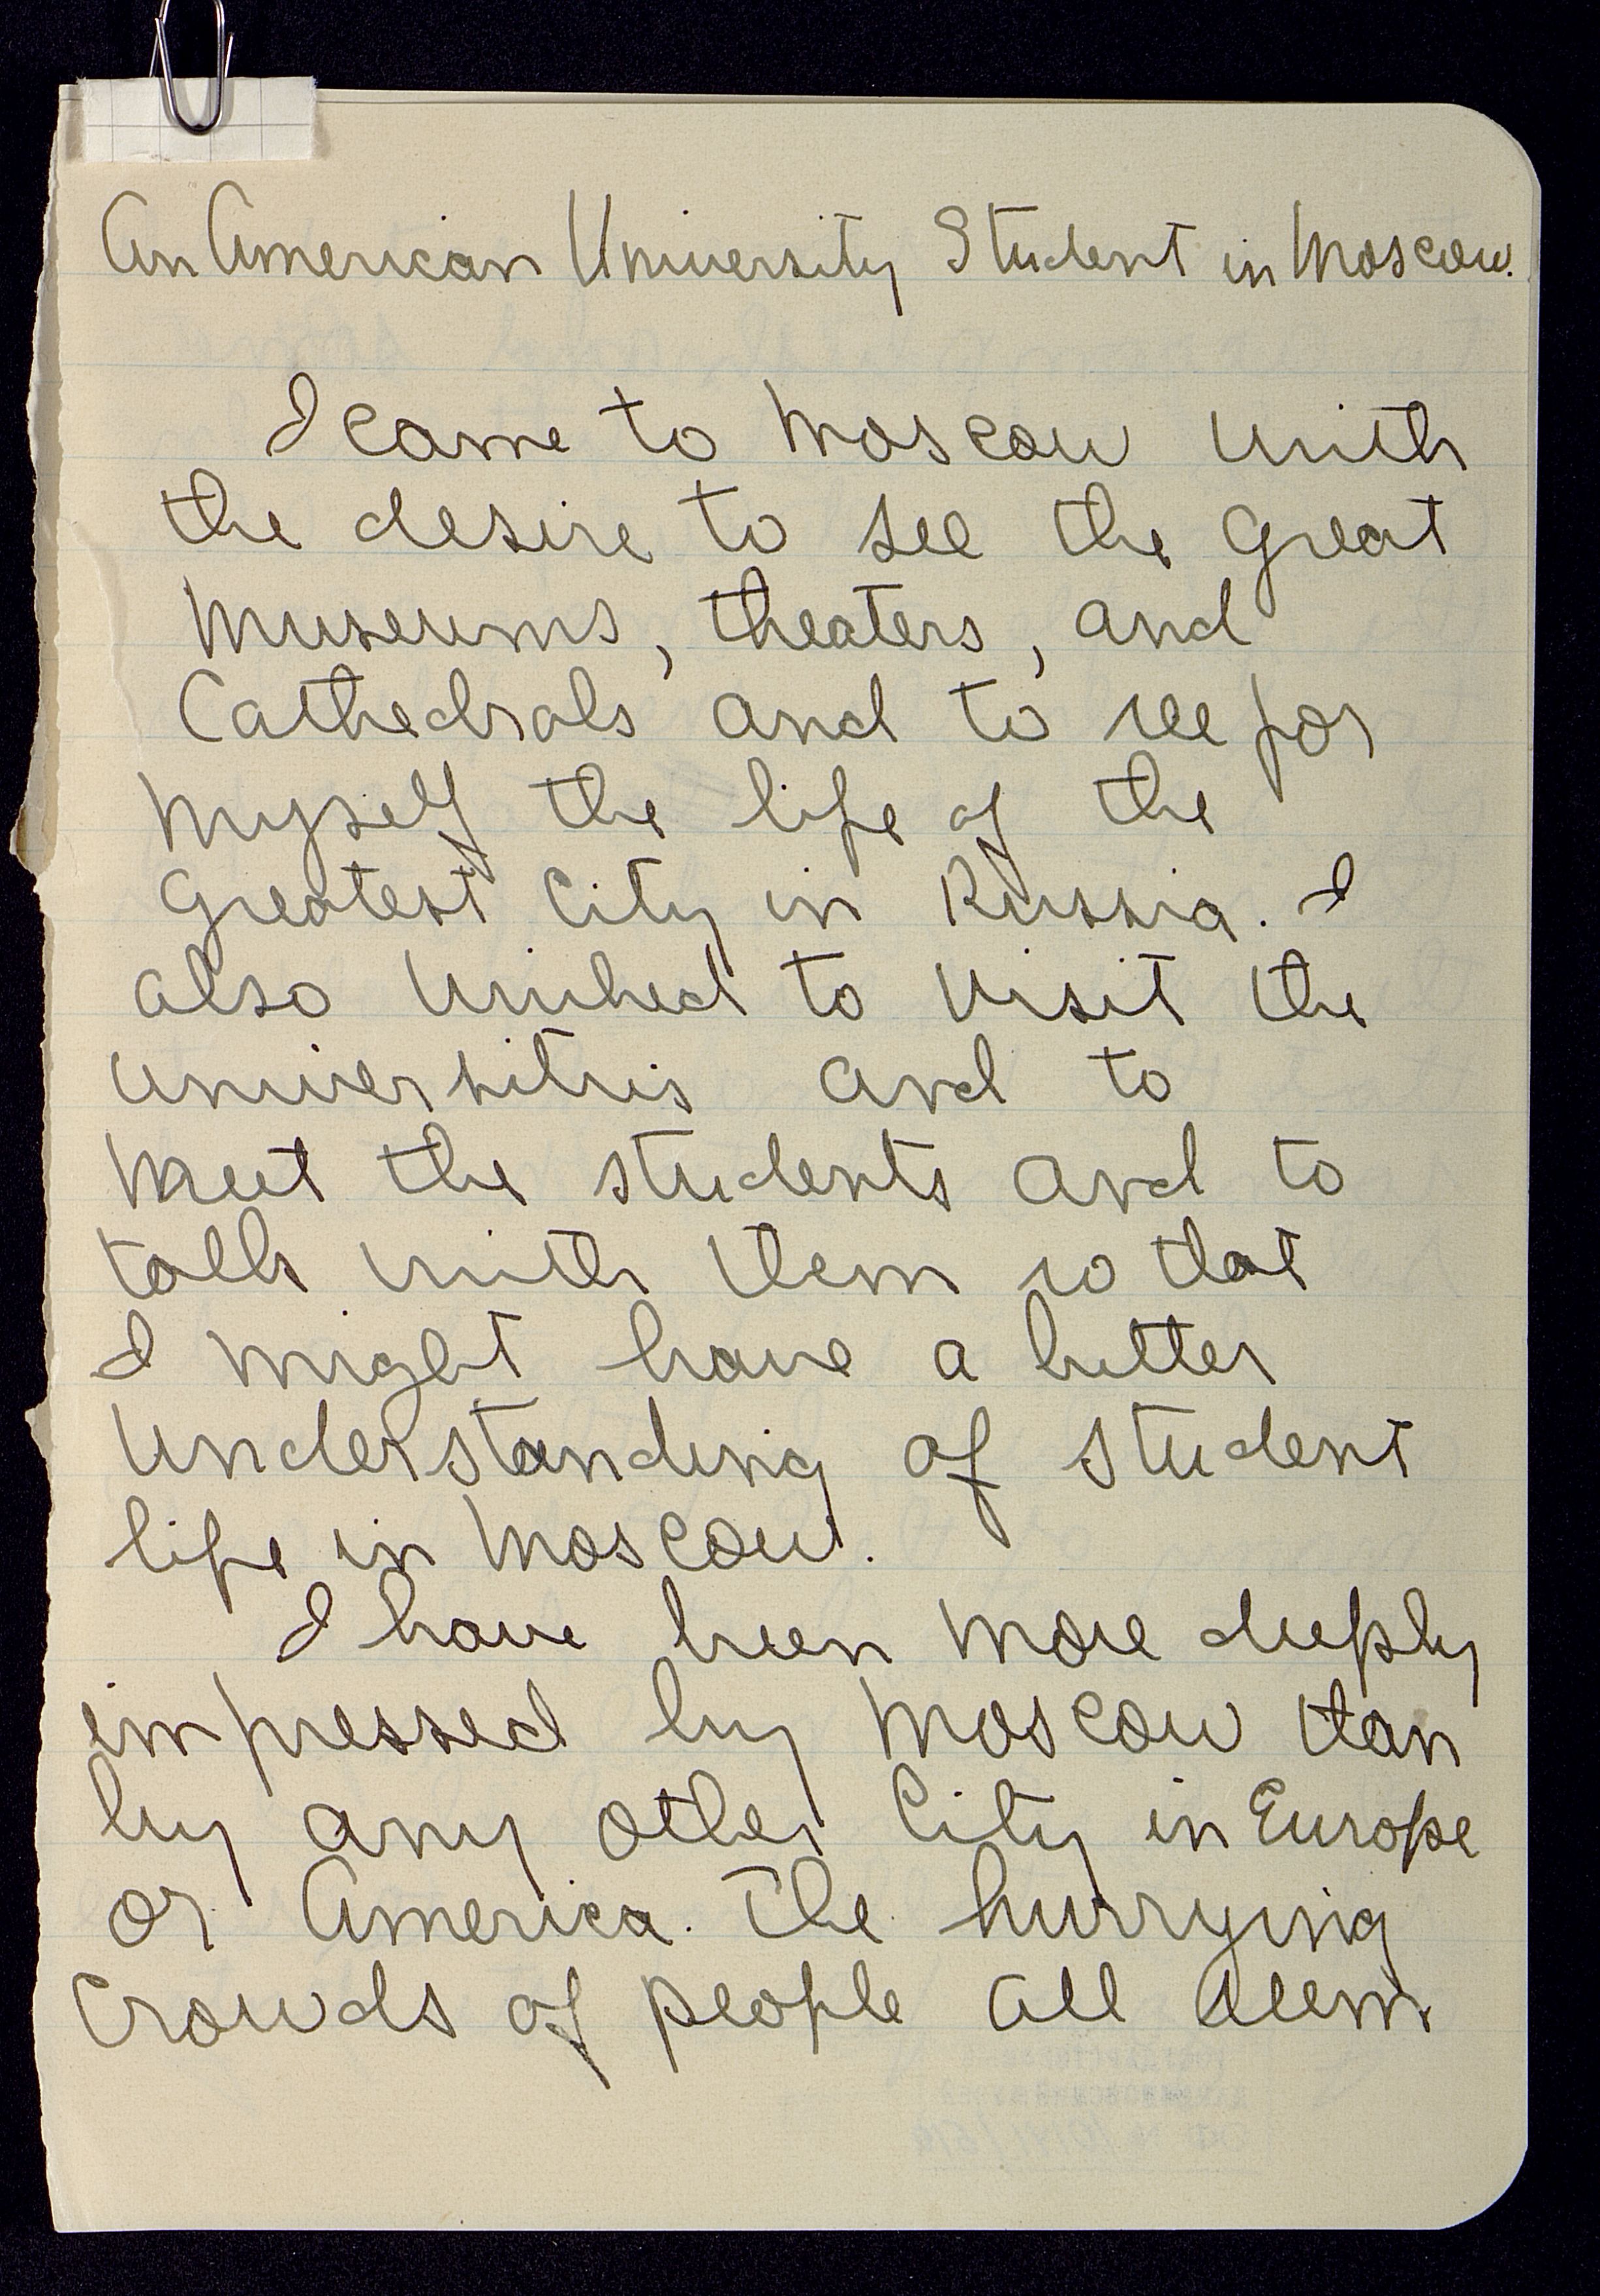 An American University Student in Moscow.
I came to Moscow with
the desire to see the great
museums, theaters, and
Cathedrals and to see for
myself the life of the
greatest City in Russia. I
also wished to visit the
universities and to
meet the students and to
talk with them so that
I might have a better
understanding of student
life in Moscow.
I have been more deeply
impressed by Moscow than
by any other City in Europe
or America. The hurrying
Crowds of people all seem